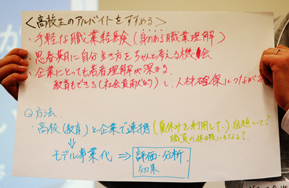 ＜高校生のアルバイトをすすめる＞
・手軽な職業経験（身のある職業理解）
・思春期に自分の生き方をちゃんと考える機会
・企業にとっても若者理解が深まる
教育もできる(社会貢献)し、人材確保につながる
方法
・高校（教育）と企業で連携（夏休みを利用して）
↓
モデル事業化 ⇒ 評価・分析
効果